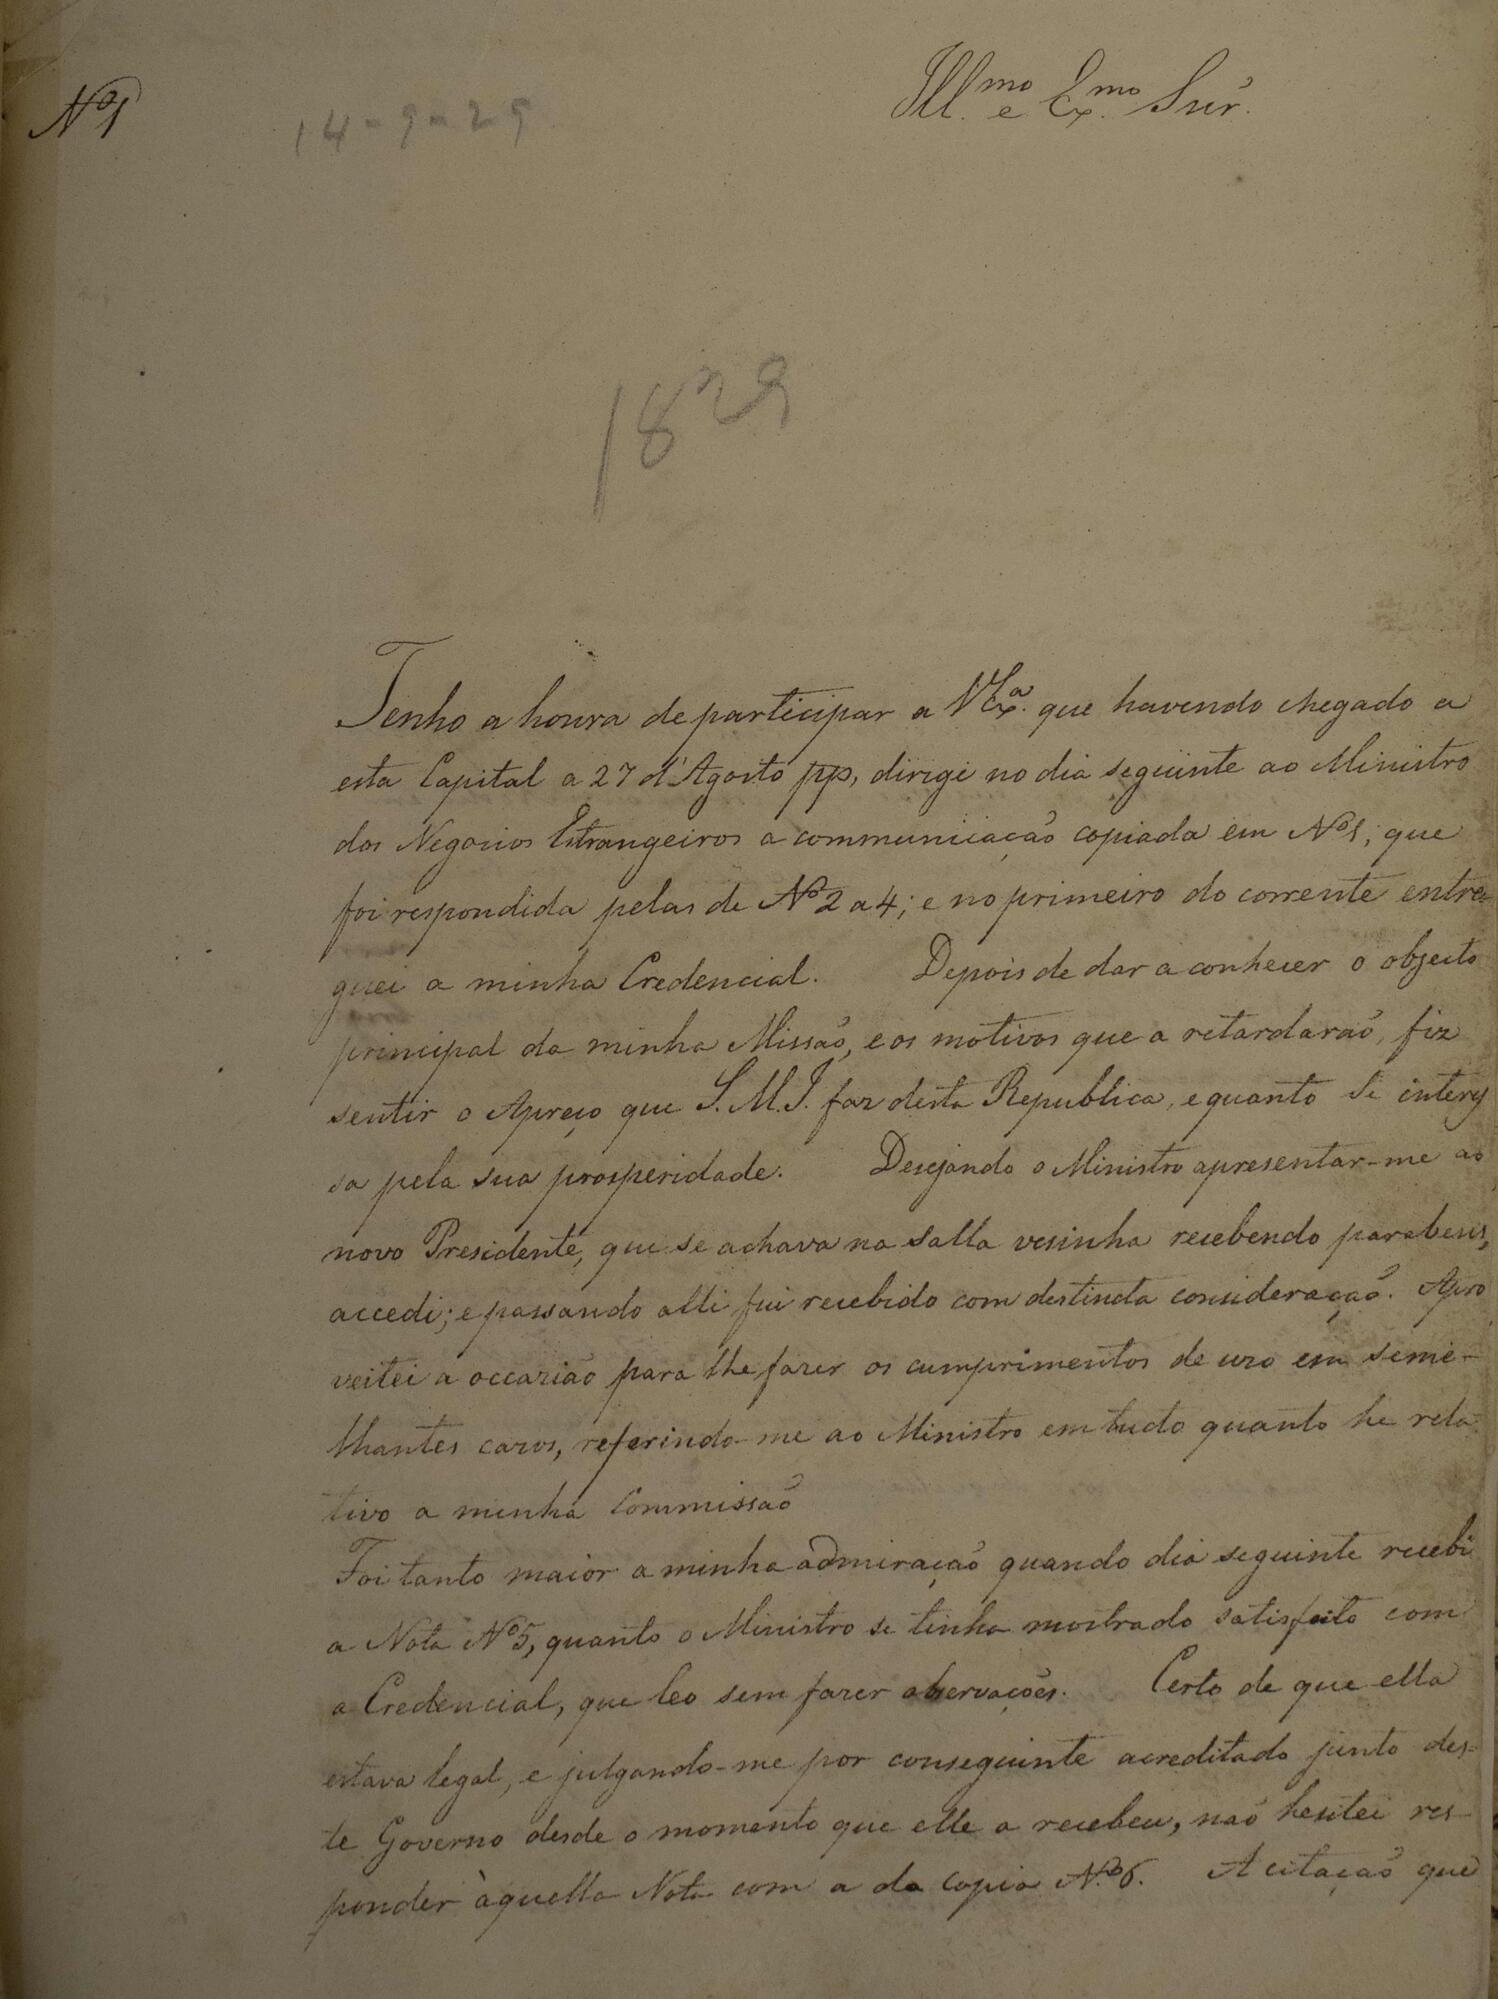 Nº 1
14-9-29
Ill.mo e Ex.mo Snr.
1829
Tenho a honra de participar a V Ex.a que havendo chegado a
esta Capital a 27 d'Agosto pp, dirigi no dia seguinte ao Ministro
dos Negocios Estrangeiros a communicação copiada em Nº 1; que
foi respondida pelas de Nº 2 a 4; e no primeiro do corrente entre-
guei a minha Credencial. Depois de dar a conhecer o objecto
principal da minha Missaõ, e os motivos que a retardaraõ, fiz
sentir o Apreço que S. M. I. faz desta Republica, e quanto Se interes
sa pela sua prosperidade. Desejando o Ministro apresentar-me ao
novo Presidente, que se achava na Salla vesinha recebendo parabens,
accedi; e passando alli fui recebido com destincta consideraçaõ. Apro
veitei a occaziaõ para lhe fazer os cumprimentos de uzo em seme-
lhantes cazos, referindo-me ao Ministro em tudo quanto he rela
tivo a minha Commissaõ
Foi tanto maior a minha admiraçaõ quando dia seguinte recebi
a Nota Nº 5, quanto o Ministro se tinha mostrado satisfeito com
a Credencial, que leo sem fazer observações. Certo de que ella
estava legal, e julgando-me por conseguinte acreditado junto des-
te Governo desde o momento que elle a recebeu, naõ hesitei res-
ponder àquella Nota com a da copia Nº 6. A citaçaõ que